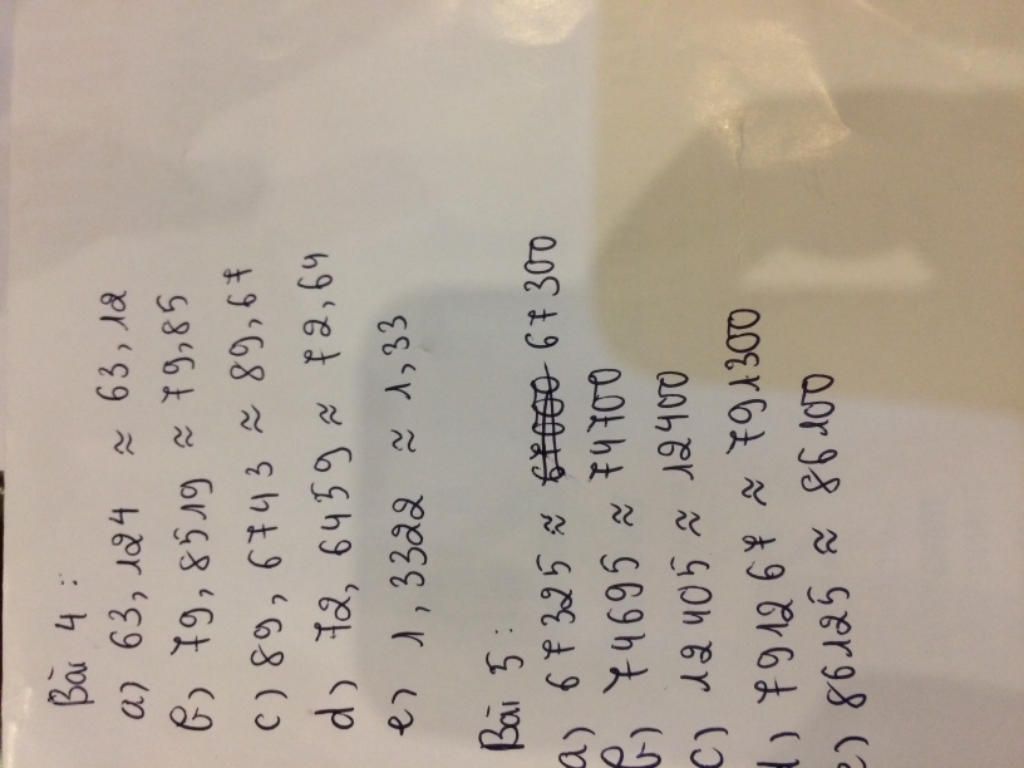 Bài 4 :
a) 63,124 ≈ 63,12
b) 79,8519 ≈ 79,85
c) 89,6743 ≈ 89,67
d) 72,6459 ≈ 72,64
e) 1,3322 ≈ 1,33
Bài 5 :
a) 67325 ≈ 67000 67300
b) 74695 ≈ 74700
c) 12405 ≈ 12400
d) 791267 ≈ 791300
e) 86125 ≈ 86100